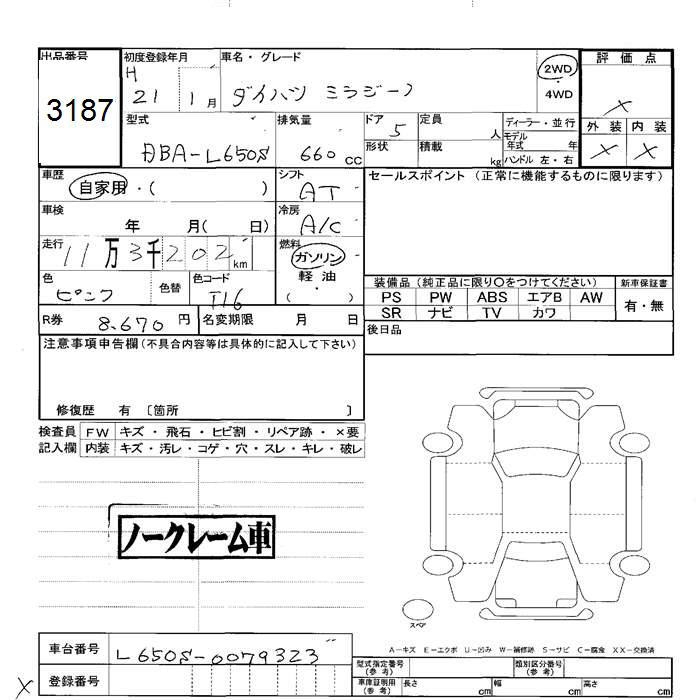 出品番号 初度登録年月 車名・グレード 2WD 評価点
3187 H 21 1月 ダイハツ ミラジーノ ・4WD ×
型式 排気量 ドア 定員 ディーラー・並行 外装 内装
DBA-L650S 660cc 5 人 モデル年式 年 × ×
形状 積載 kg ハンドル 左・右
車歴 シフト セールスポイント(正常に機能するものに限ります)
自家用・( ) AT
車検 冷房
年 月( 日) A/C
走行 燃料
11万3千202km ガソリン
軽油
色 色替 色コード ・( ) 装備品(純正品に限り○をつけてください) 新車保証書
ピンク T16 PS PW ABS エアB AW 有・無
SR ナビ TV カワ
R券 8.670円 名変期限 月 日 後日品
注意事項申告欄(不具合内容等は具体的に記入して下さい)
修復歴 有 〔箇所 〕
検査員 FW キズ・飛石・ヒビ割・リペア跡・×要
記入欄 内装 キズ・汚レ・コゲ・穴・スレ・キレ・破レ
ノークレーム車
スペア
A-キズ E-エクボ U-凹み W-補修跡 S-サビ C-腐食 XX-交換済
車台番号 L650S-0079323
型式指定番号(参考) 類別区分番号(参考)
× 登録番号
車庫証明用(参考) 長さ cm 幅 cm 高さ cm